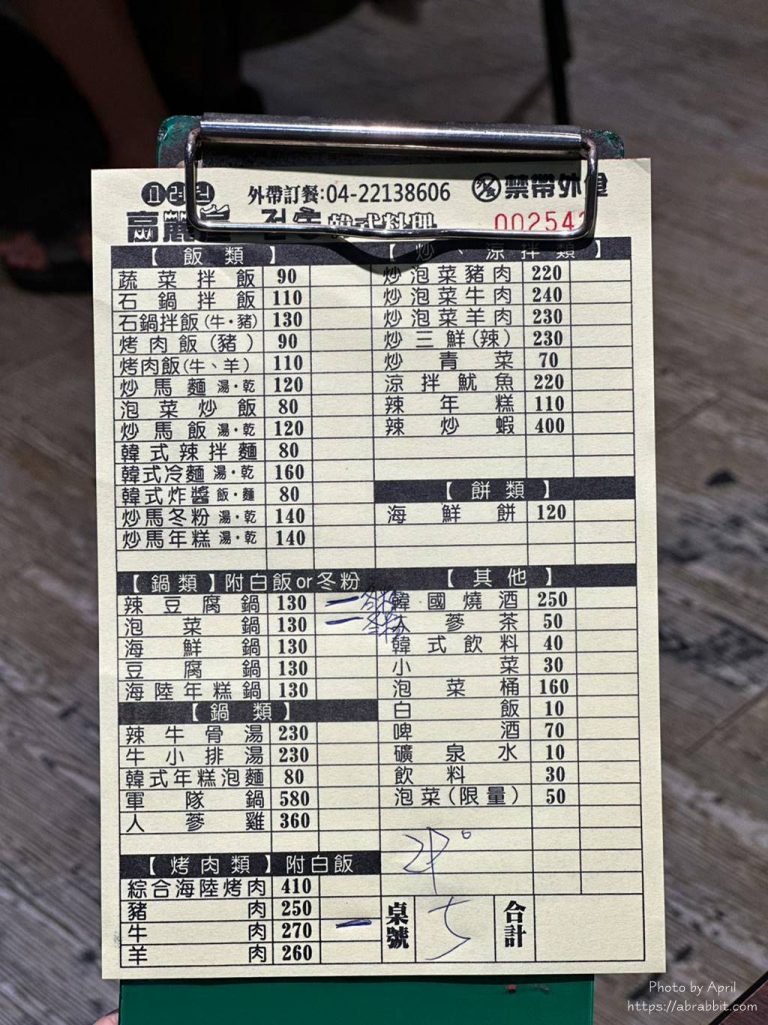 外帶訂餐:04-22138606 禁帶外食
高麗 韓式料理 002542
【飯類】
蔬菜拌飯 90
石鍋拌飯 110
石鍋拌飯(牛・豬) 130
烤肉飯(豬) 90
烤肉飯(牛、羊) 110
炒馬麵 湯・乾 120
泡菜炒飯 80
炒馬飯 湯・乾 120
韓式辣拌麵 80
韓式冷麵 湯・乾 160
韓式炸醬 飯・麵 80
炒馬冬粉 湯・乾 140
炒馬年糕 湯・乾 140
【鍋類】附白飯or冬粉
辣豆腐鍋 130 一
泡菜鍋 130 一
海鮮鍋 130
豆腐鍋 130
海陸年糕鍋 130
【鍋類】
辣牛骨湯 230
牛小排湯 230
韓式年糕泡麵 80
軍隊鍋 580
人蔘雞 360
【烤肉類】附白飯
綜合海陸烤肉 410
豬肉 250
牛肉 270 一
羊肉 260
【炒、涼拌類】
炒泡菜豬肉 220
炒泡菜牛肉 240
炒泡菜羊肉 230
炒三鮮(辣) 230
炒青菜 70
涼拌魷魚 220
辣年糕 110
辣炒蝦 400
【餅類】
海鮮餅 120
【其他】
韓國燒酒 250
人蔘茶 50
韓式飲料 40
小菜 30
泡菜桶 160
白飯 10
啤酒 70
礦泉水 10
飲料 30
泡菜(限量) 50
2P
桌號 5 合計
Photo by April
https://abrabbit.com